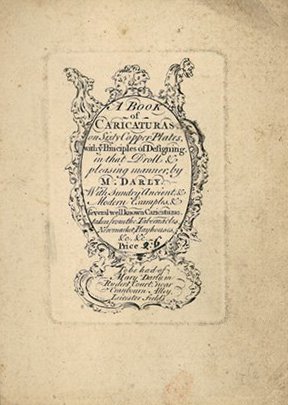 A BOOK
of
CARICATURAS
on Sixty Copper Plates,
with yͤ Principles of Designing,
in that Droll &
pleasing manner, by
M. DARLY.
With Sundry Ancient &
Modern Examples &
Several well known Caricaturas.
taken from the Tabernacles
Newmarket Playhouses,
&c. &c.
Price 2:6
To be had of
Mary Darly in
Ryders Court near
Cranbourn Alley,
Leicester Fields